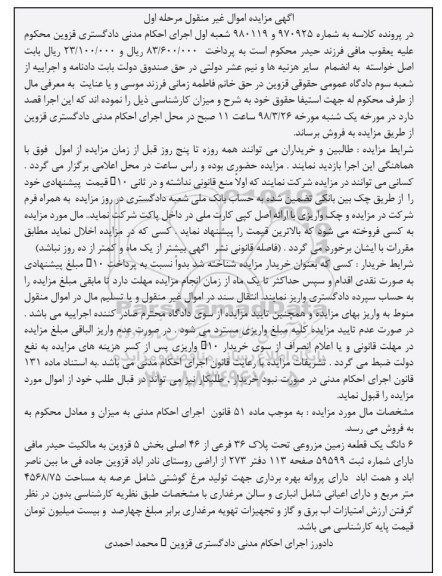 آگهی مزایده اموال غیر منقول مرحله اول
در پرونده کلاسه به شماره ۹۷۰۹۲۵ و ۹۸۰۱۱۹ شعبه اول اجرای احکام مدنی دادگستری قزوین محکوم
علیه یعقوب مافی فرزند حیدر محکوم است به پرداخت ۸۳/۶۰۰/۰۰۰ ریال و ۲۳/۱۰۰/۰۰۰ ریال بابت
اصل خواسته به انضمام سایر هزینه ها و نیم عشر دولتی در حق صندوق دولت بابت دادنامه و اجراییه از
شعبه سوم دادگاه عمومی حقوقی قزوین در حق خانم فاطمه زمانی فرزند موسی و یا عنایت به معرفی مال
از طرف محکوم له جهت استیفا حقوق خود به شرح و میزان کارشناسی ذیل را نموده اند که این اجرا قصد
دارد در مورخه یک شنبه مورخه ۹۸/۳/۲۶ ساعت ۱۱ صبح در محل اجرای احکام مدنی دادگستری قزوین
از طریق مزایده به فروش برساند.
شرایط مزایده : طالبین و خریداران می توانند همه روزه تا پنج روز قبل از زمان مزایده از امول فوق با
هماهنگی این اجرا بازدید نمایند . مزایده حضوری بوده و راس ساعت در محل اعلامی برگزار می گردد .
کسانی می توانند در مزایده شرکت نمایند که اولا منع قانونی نداشته و در ثانی ۱۰ قیمت پیشنهادی خود
را از طریق چک بین بانکی تضمین شده به حساب بانک ملی شعبه دادگستری در روز مزایده به همراه فرم
شرکت در مزایده و چک واریزی با ارائه اصل کپی کارت ملی در داخل پاکت شرکت نماید. مال مورد مزایده
به کسی فروخته می شود که بالاترین قیمت را پیشنهاد نماید . کسی که در مزایده اخلال نماید مطابق
مقررات با ایشان برخورد می گردد . (فاصله قانونی نشر آگهی بیشتر از یک ماه و کمتر از ده روز نباشد)
شرایط خریدار : کسی که بعنوان خریدار مزایده شناخته شد بدوا نسبت به پرداخت ۱۰ مبلغ پیشنهادی
به صورت نقدی اقدام و سپس حداکثر تا یک ماه از زمان انجام مزایده مهلت دارد تا مابقی مبلغ مزایده را
به حساب سپرده دادگستری واریز نمایند انتقال سند در اموال غیر منقول و یا تسلیم مال در اموال منقول
منوط به واریز بهای مزایده و همچنین تایید مزایده از سوی دادگاه محترم صادر کننده اجراییه می باشد .
در صورت عدم تایید مزایده کلیه مبلغ واریزی مسترد می شود . در صورت عدم واریز الباقی مبلغ مزایده
در مهلت قانونی و یا اعلام انصراف از سوی خریدار ۱۰ واریزی پس از کسر هزینه های مزایده به نفع
دولت ضبط می گردد . تشریفات مزایده با رعایت قانون اجرای احکام مدنی می باشد .به استناد ماده ۱۳۱
قانون اجرای احکام مدنی در صورت نبود خریدار ، طلبکار نیز می تواند در قبال طلب خود از اموال مورد
مزایده را قبول نماید.
مشخصات مال مورد مزایده : به موجب ماده ۵۱ قانون اجرای احکام مدنی به میزان و معادل محکوم به
به فروش می رسد.
۶ دانگ یک قطعه زمین مزروعی تحت پلاک ۳۶ فرعی از ۴۶ اصلی بخش ۵ قزوین به مالکیت حیدر مافی
دارای شماره ثبت ۵۹۵۹۹ صفحه ۱۱۳ دفتر ۲۷۳ از اراضی روستای نادر اباد قزوین جاده فی ما بین ناصر
اباد و همت اباد دارای پروانه بهره برداری جهت تولید مرغ گوشتی شامل عرصه به مساحت ۴۵۶۸/۷۵
متر مربع و دارای اعیانی شامل انباری و سالن مرغداری با مشخصات طبق نظریه کارشناسی بدون در نظر
گرفتن ارزش امتیازات اب برق و گاز و تجهیزات تهویه مرغداری برابر مبلغ چهارصد و بیست میلیون تومان
قیمت پایه کارشناسی می باشد.
دادورز اجرای احکام مدنی دادگستری قزوین محمد احمدی